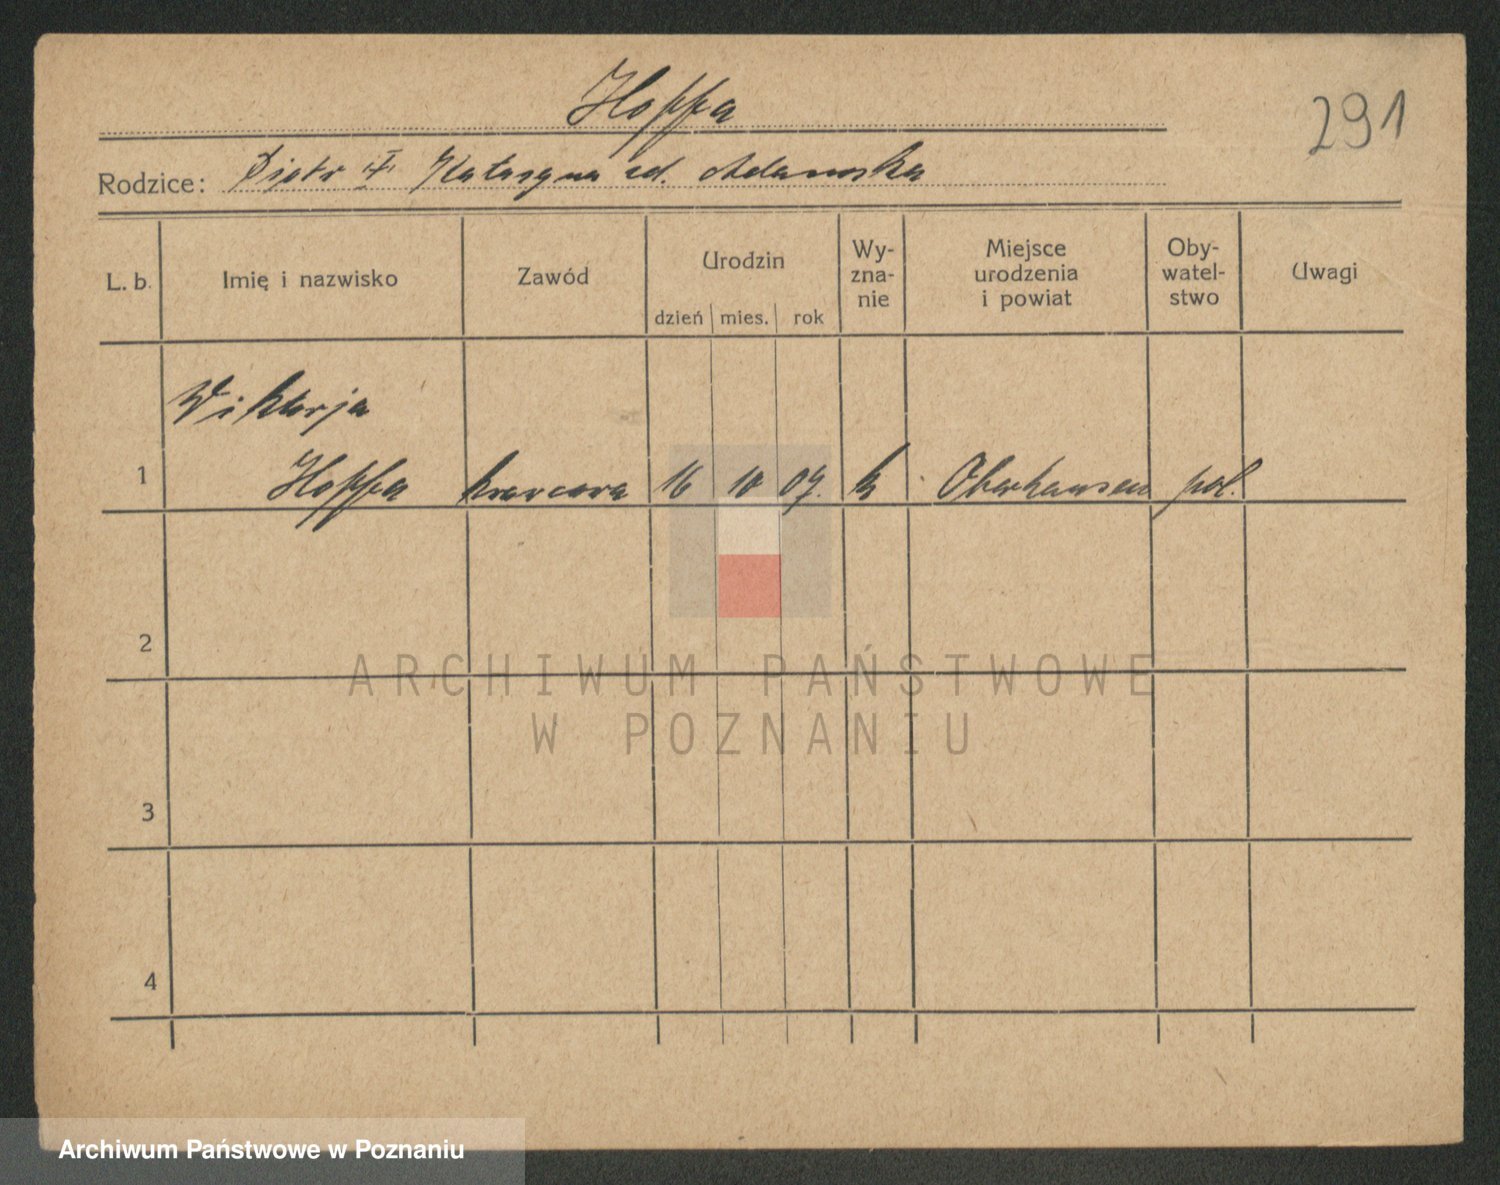 Hoffa
291
Rodzice: Piotr Katarzyna zd. Adamska
L. b. Imię i nazwisko Zawód Urodzin Wy-
zna-
nie Miejsce
urodzenia
i powiat Oby-
watel-
stwo Uwagi
dzień mies. rok
Wiktorja
1 Hoffa krawcowa 16 10 07. k Oberhausen pol.
2
3
4
ARCHIWUM PAŃSTWOWE
W POZNANIU
Archiwum Państwowe w Poznaniu